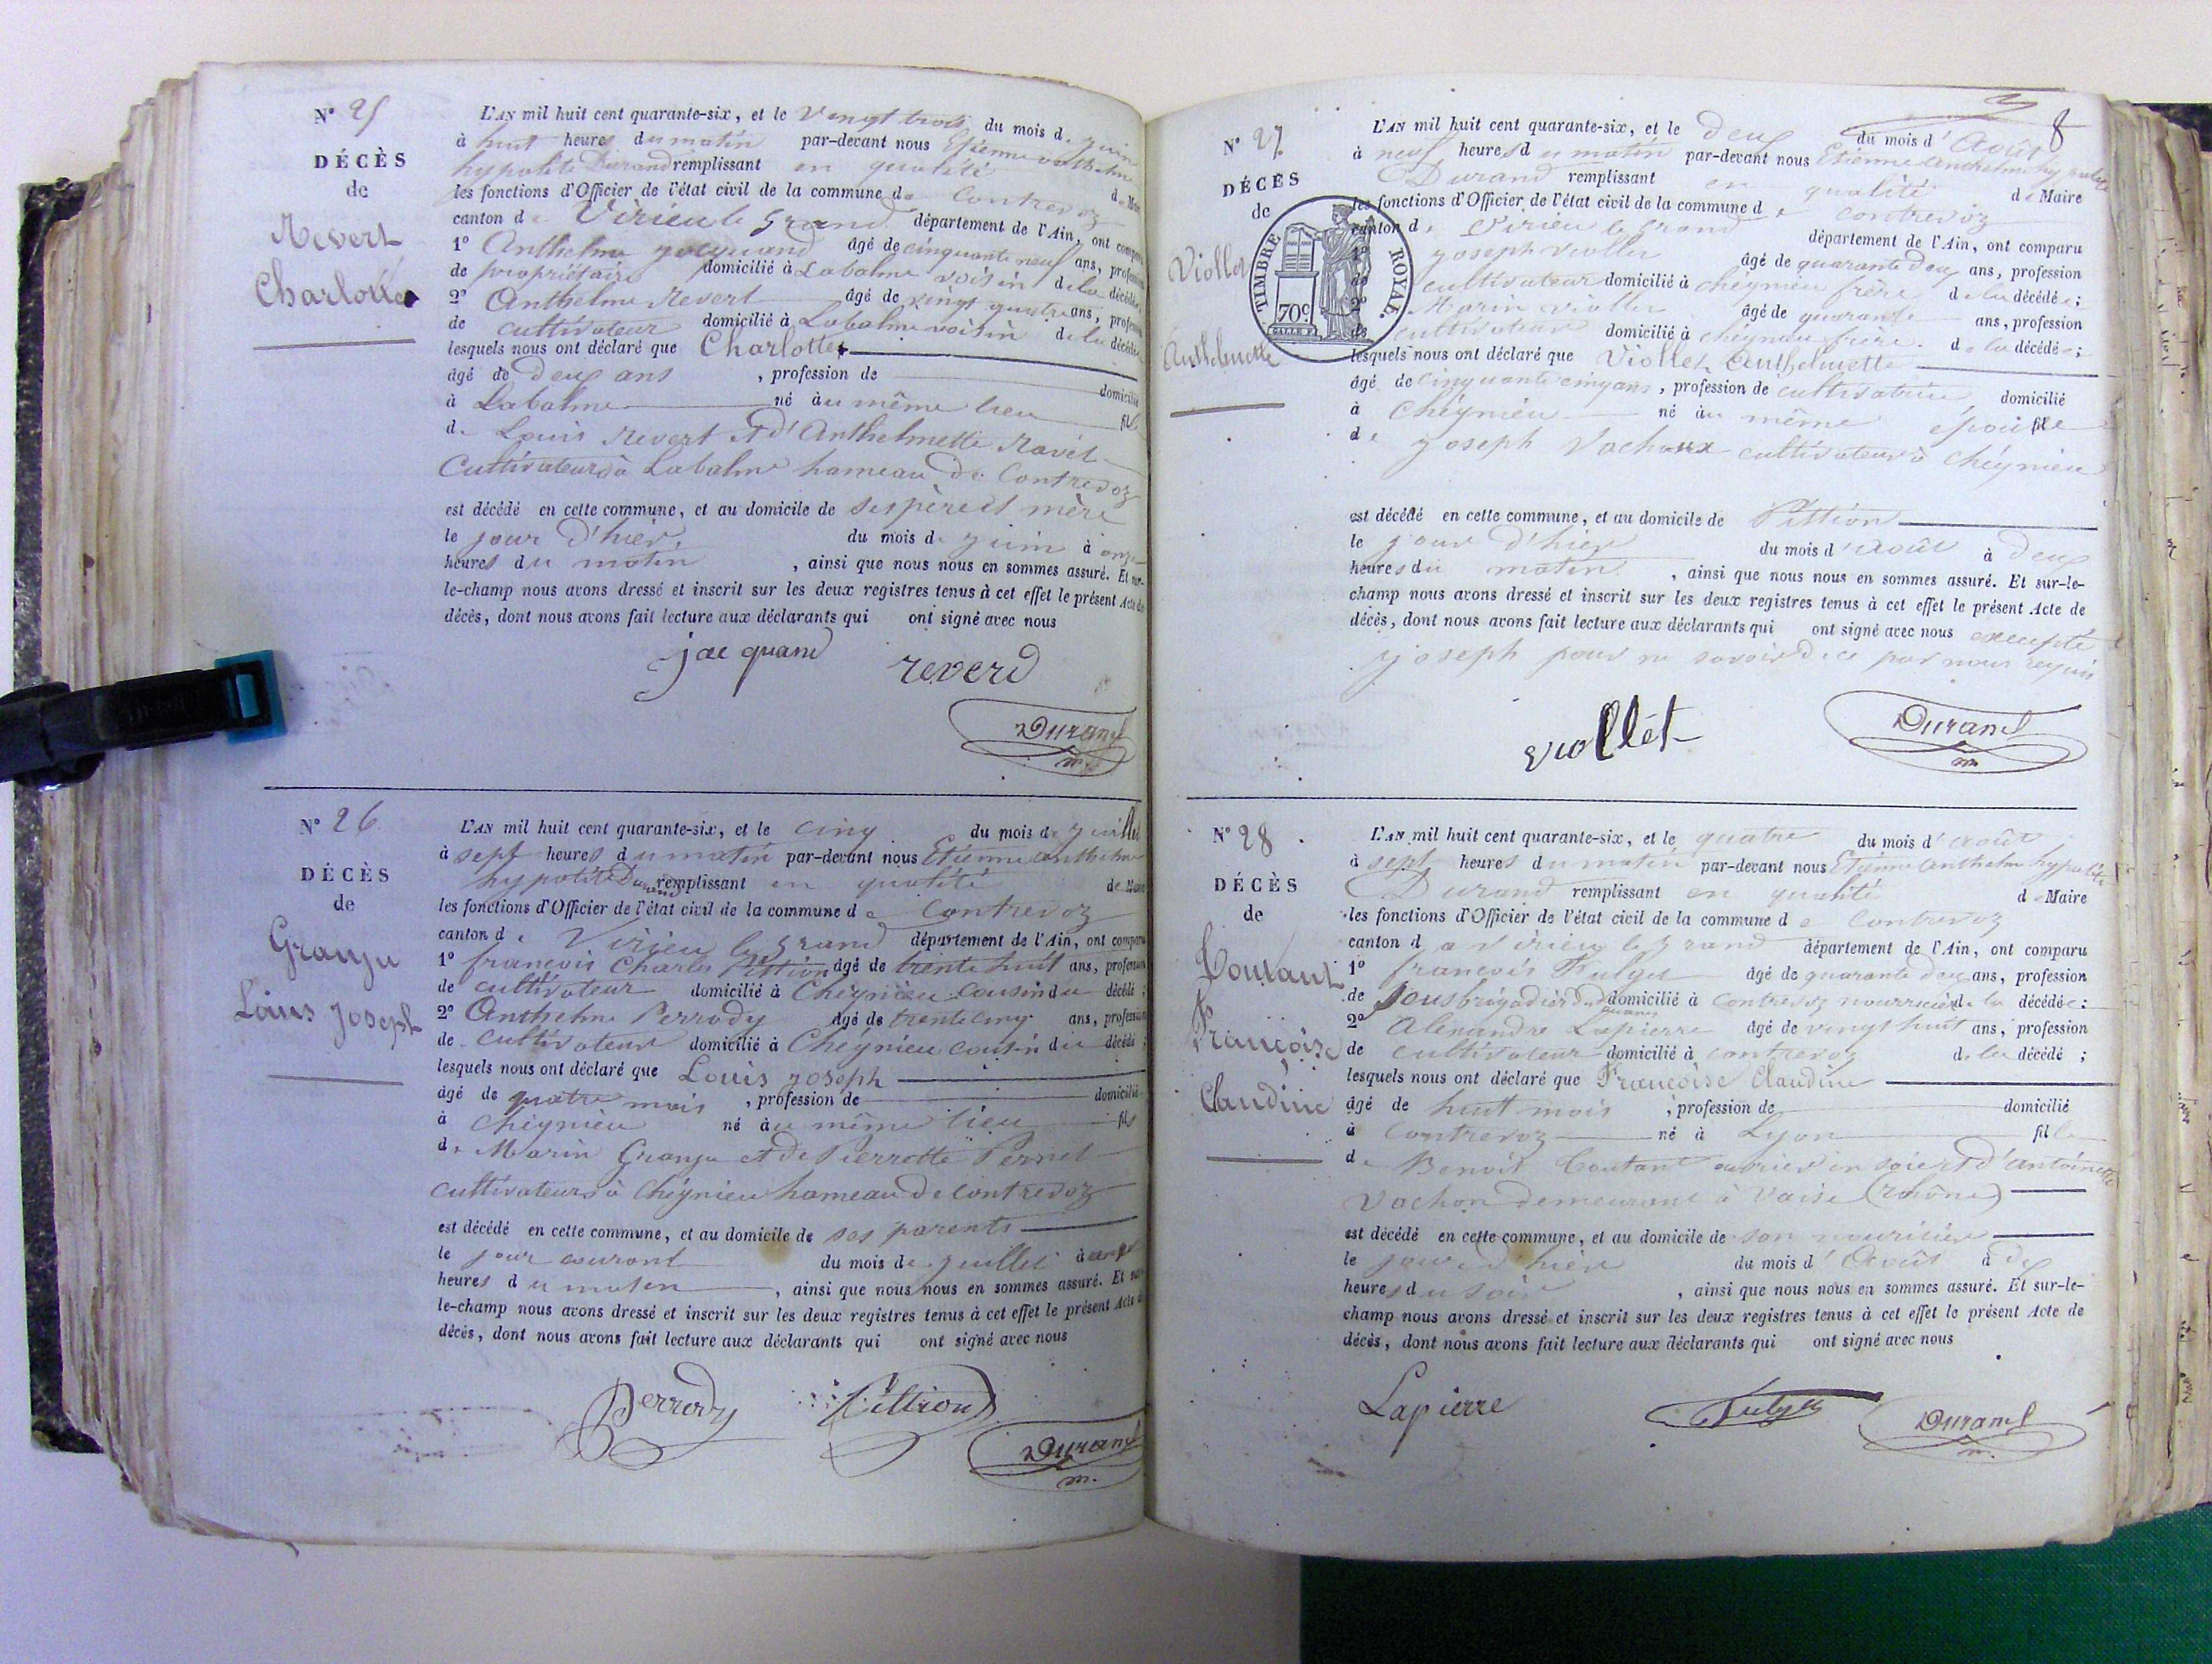 N° 25
DÉCÈS
de
Revert
Charlotte
L'AN mil huit cent quarante-six, et le Vingt trois du mois de juin
à huit heures du matin par-devant nous Etienne anthelme
hypolite Durand remplissant en qualité de Maire
les fonctions d'Officier de l'état civil de la commune de Contrevoz
canton de Virieu le Grand département de l'Ain, ont comparu
1° Anthelme jacquand âgé de cinquante neuf ans, profession
de propriétaire domicilié à Labalme voisin de la décédée
2° Anthelme Revert âgé de vingt quatre ans, profession
de cultivateur domicilié à Labalme voisin de la décédée
lesquels nous ont déclaré que Charlotte
âgé de deux ans , profession de domicilié
à Labalme né au même lieu fille
de Louis Revert et d'Anthelmette Ravet
Cultivateurs à Labalme hameau de Contrevoz
est décédé en cette commune, et au domicile de ses père et mère
le jour d'hier, du mois de juin à onze
heures du matin , ainsi que nous nous en sommes assuré. Et sur-
le-champ nous avons dressé et inscrit sur les deux registres tenus à cet effet le présent Acte de
décès, dont nous avons fait lecture aux déclarants qui ont signé avec nous
jacquand reverd
Durand
m.
N° 26
DÉCÈS
de
Granju
Louis Joseph
L'AN mil huit cent quarante-six, et le cinq du mois de juillet
à sept heures du matin par-devant nous Etienne anthelme
hypolite Durand remplissant en qualité de Maire
les fonctions d'Officier de l'état civil de la commune de Contrevoz
canton de Virieu le Grand département de l'Ain, ont comparu
1° francois Charles Pittion âgé de trente huit ans, profession
de cultivateur domicilié à Cheignieu cousin du décédé ;
2° Anthelme Perrody âgé de trente cinq ans, profession
de cultivateur domicilié à Cheignieu cousin du décédé ;
lesquels nous ont déclaré que Louis joseph
âgé de quatre mois , profession de domicilié
à cheignieu né au même lieu fils
de Marin Granju et de Pierrette Pernet
cultivateurs à Cheignieu hameau de contrevoz
est décédé en cette commune, et au domicile de ses parents
le jour courant du mois de juillet à
heures du matin , ainsi que nous nous en sommes assuré. Et sur
le-champ nous avons dressé et inscrit sur les deux registres tenus à cet effet le présent Acte de
décès, dont nous avons fait lecture aux déclarants qui ont signé avec nous
Perrody Pittion
Durand
m.
8
N° 27
DÉCÈS
de
Viollet
Anthelmette
TIMBRE ROYAL.
70c
L'AN mil huit cent quarante-six, et le deux du mois d'Août
à neuf heures du matin par-devant nous Etienne anthelme hypolite
Durand remplissant en qualité de Maire
les fonctions d'Officier de l'état civil de la commune de contrevoz
canton de Virieu le Grand département de l'Ain, ont comparu
1° joseph viollet âgé de quarante deux ans, profession
de cultivateur domicilié à cheignieu frère de la décédée ;
2° Marin viollet âgé de quarante ans, profession
de cultivateur domicilié à cheignieu frère. de la décédée ;
lesquels nous ont déclaré que Viollet Anthelmette
âgé de cinquante cinq ans , profession de cultivatrice domicilié
à cheignieu né au même épouse
de joseph Vachoux cultivateur à cheignieu
est décédé en cette commune, et au domicile de Pittion
le jour d'hier du mois d'août à deux
heures du matin , ainsi que nous nous en sommes assuré. Et sur-le-
champ nous avons dressé et inscrit sur les deux registres tenus à cet effet le présent Acte de
décès, dont nous avons fait lecture aux déclarants qui ont signé avec nous excepté
joseph pour ne savoir de ce par nous requis
viollet
Durand
m.
N° 28
DÉCÈS
de
Coutant
Françoise
Claudine
L'AN mil huit cent quarante-six, et le quatre du mois d'août
à sept heures du matin par-devant nous Etienne anthelme hypolite
Durand remplissant en qualité de Maire
les fonctions d'Officier de l'état civil de la commune de Contrevoz
canton de virieu le grand département de l'Ain, ont comparu
1° francois âgé de quarante deux ans, profession
de sousbrigadier domicilié à Contrevoz nourricier de la décédée ;
2° Alexandre Lapierre âgé de vingt huit ans, profession
de cultivateur domicilié à contrevoz de la décédé ;
lesquels nous ont déclaré que Françoise Claudine
âgé de huit mois , profession de domicilié
à Contrevoz né à Lyon fille
de Benoit Coutant ouvrier en soie et d'antoinette
Vachon demeurant à Vaise (rhône)
est décédé en cette commune, et au domicile de son nourricier
le jour d'hier du mois d'Août à dix
heures du soir , ainsi que nous nous en sommes assuré. Et sur-le-
champ nous avons dressé et inscrit sur les deux registres tenus à cet effet le présent Acte de
décès, dont nous avons fait lecture aux déclarants qui ont signé avec nous
Lapierre
Durand
m.